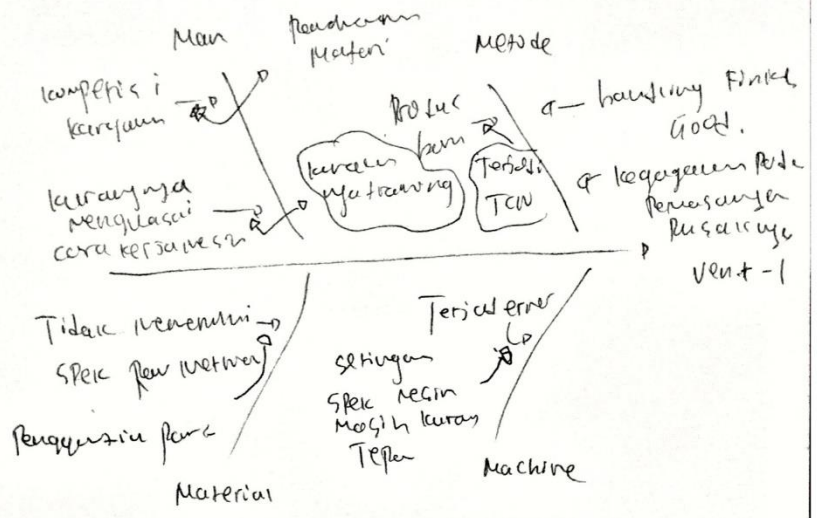 Man
Materi
Metode
kompetisi
karyawan
kurangnya
menguasai
cara kerja mesin
kurang
nya training
Produc
baru
Terjadi
TCW
handling Finish
Good.
kegagalan Pada
Pemasangan
Rusaknya
Vent-1
Tidak memenuhi
SPek Raw
Terjadi error
setingan
SPek mesin
Masih kurang
Tepat
Material
Machine